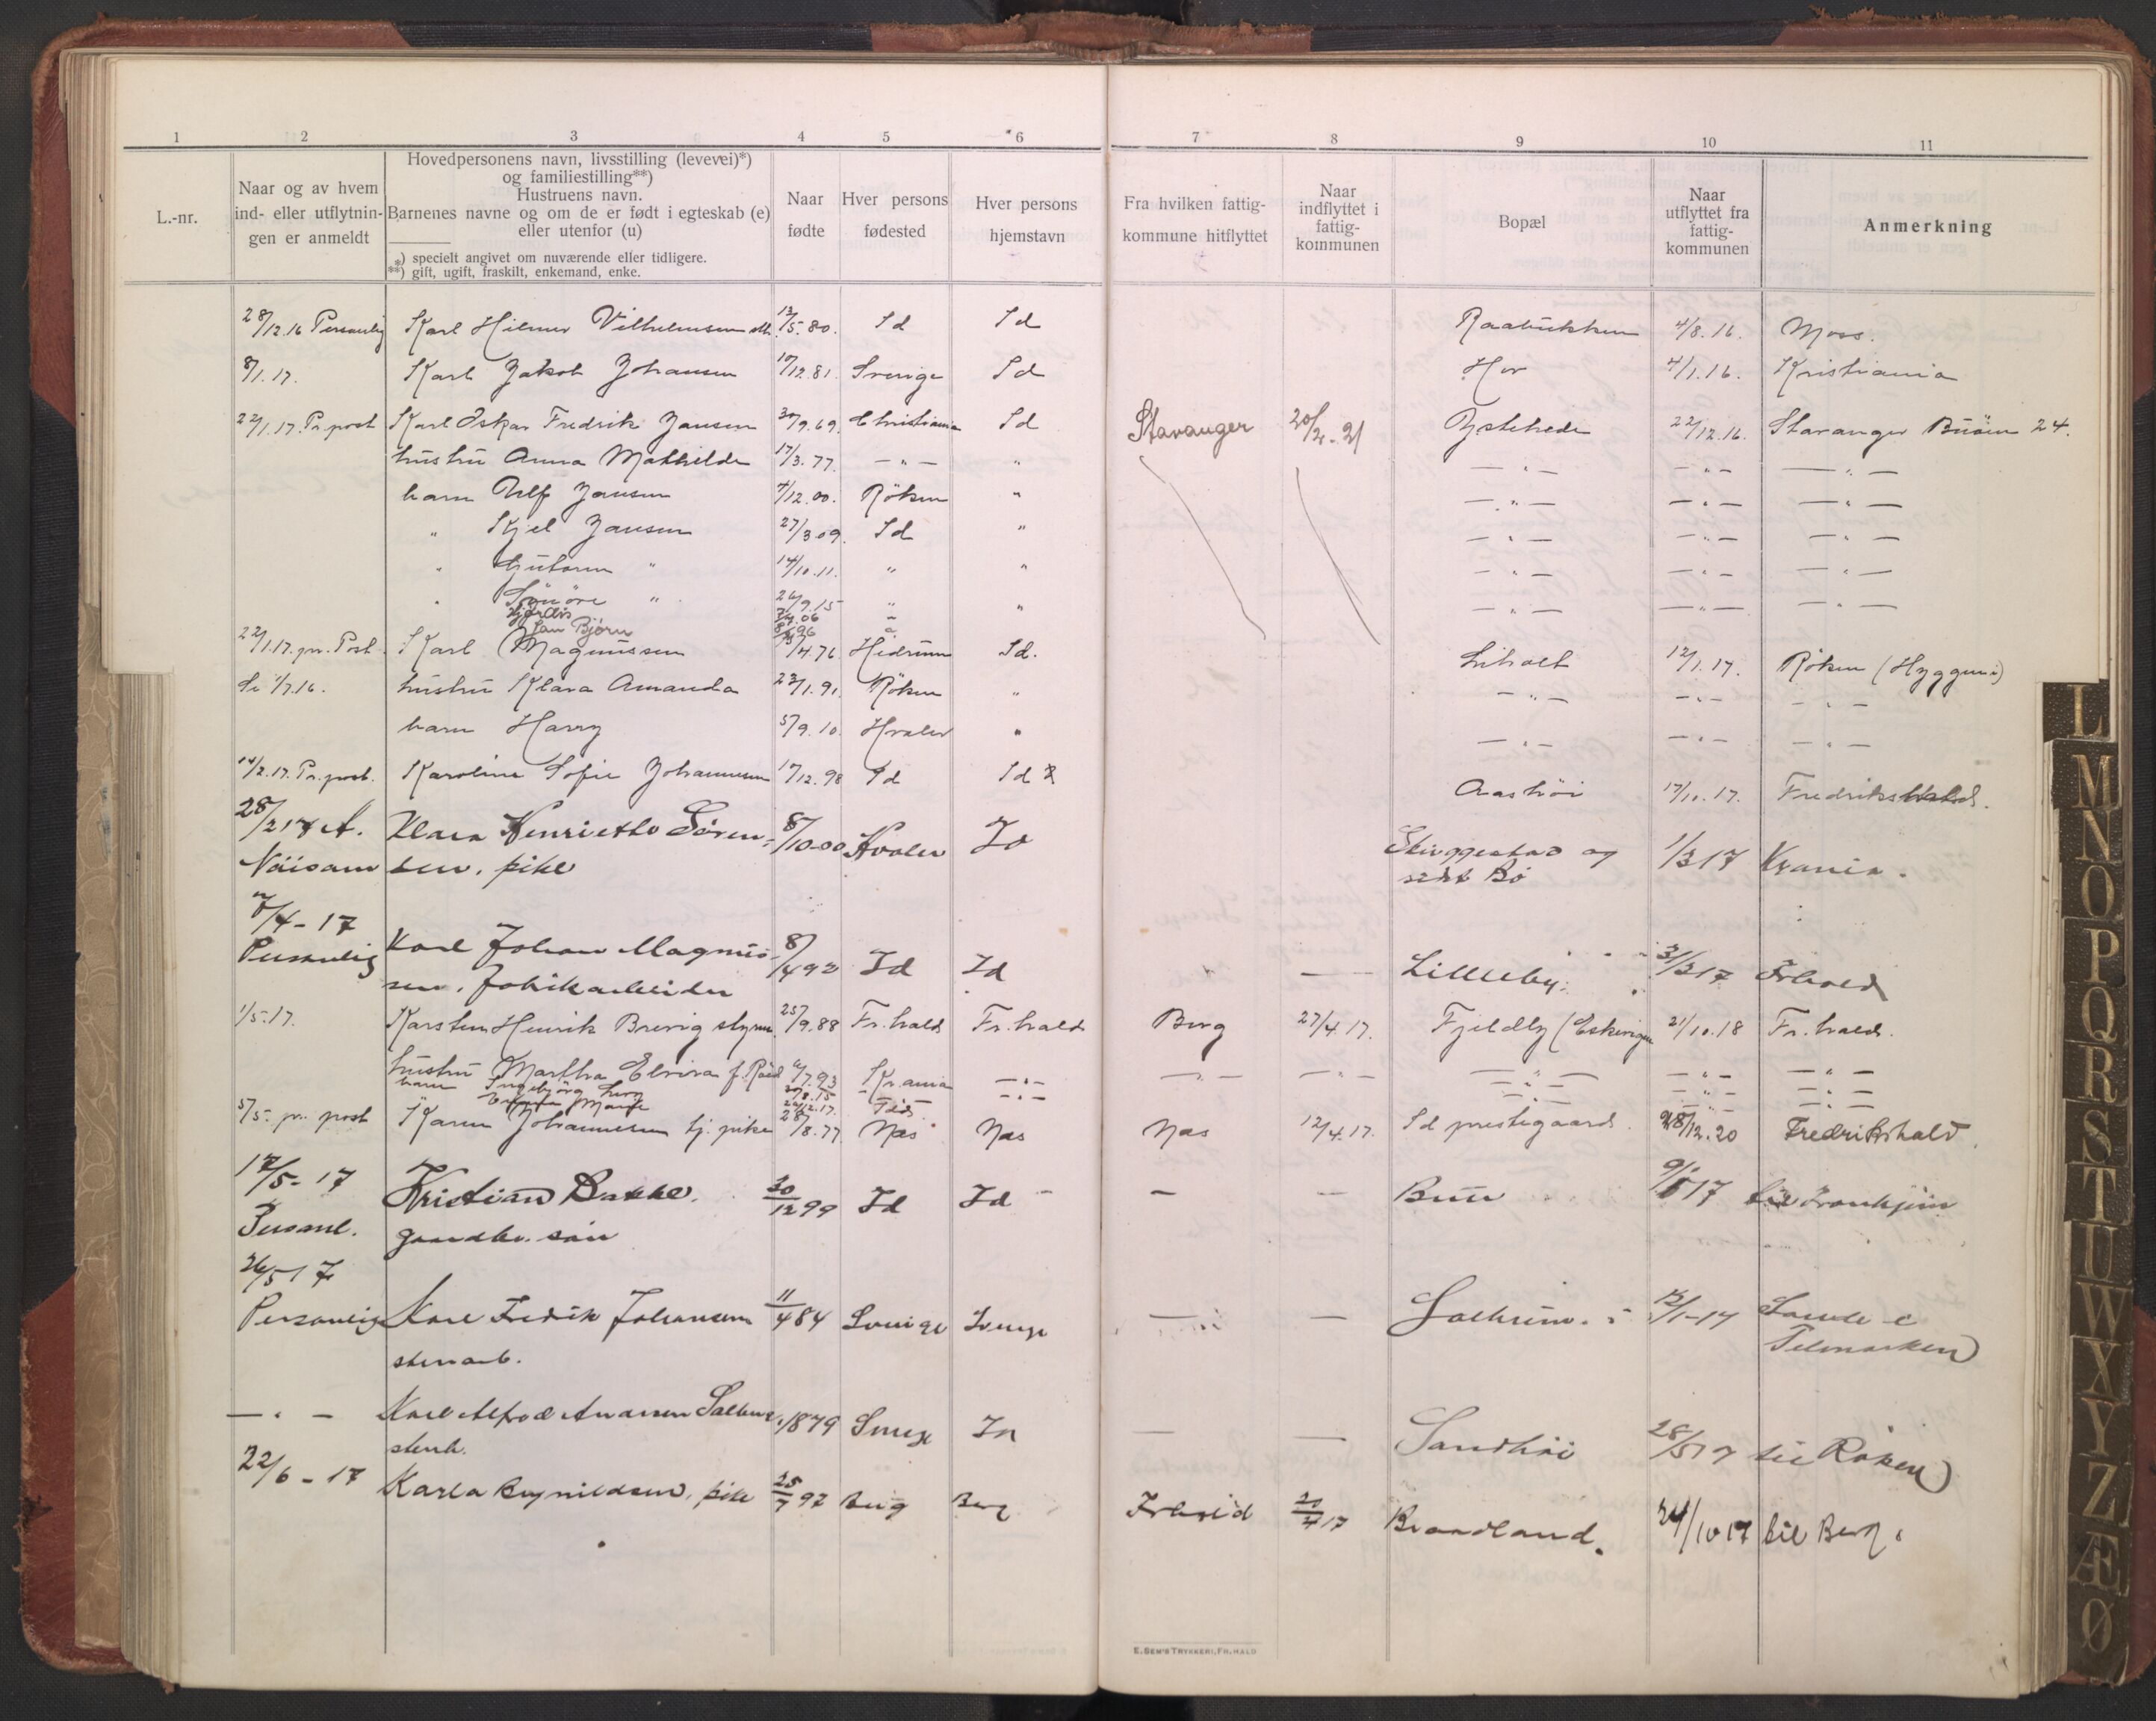 1 2 3 4 5 6 7 8 9 10 11
L.-nr.
Naar og av hvem
ind- eller utflytnin-
gen er anmeldt
Hovedpersonens navn, livsstilling (levevei)*)
og familiestilling**)
Hustruens navn.
Barnenes navne og om de er født i egteskab (e)
eller utenfor (u)
*) specielt angivet om nuværende eller tidligere.
**) gift, ugift, fraskilt, enkemand, enke.
Naar
fødte
Hver persons
fødested
Hver persons
hjemstavn
Fra hvilken fattig-
kommune hitflyttet
Naar
indflyttet i
fattig-
kommunen
Bopæl
Naar
utflyttet fra
fattig-
kommunen
Anmerkning
28/12.16 Personlig Karl Hilmer Vilhelmsen 12/5.80. Id Id Raabukken 4/8.16. Moss.
8/1.17. Karl Jakob Johansen 17/12.81. Sverige Id Hov 4/1.16. Kristiania
22/1.17. Pr. post Karl Oskar Fredrik Jansen 30/9.69. Christiania Id Stavanger 20/2.21 Ystehede 22/12.16. Stavanger Buöen 24.
hustru Anna Mathilde 17/3.77. — " — " — " — — " — — " —
barn Ulf Jansen 4/12.00. Röken " — " — — " — — " —
" Kjel Jansen 27/3.09. Id " — " — — " — — " —
" Guttorm " 14/10.11. " " — " — — " — — " —
" Synöve " 26/9.15 " " — " — — " — — " —
Hjørdis
Jan Bjørn
22/1.17. pr. Post Karl Magnussen /4.76 Hedrum Id. Liholt 12/1.17. Röken (Hyggen)
hustru Klara Amanda 23/1.91. Röken " — " — — " — — " —
barn Harry 5/9.10. Hvaler " — " — — " — — " —
14/2.17. Pr. post. Karoline Sofie Johannesen 17/12.98 Id Id Aashöi 17/10.17. Fredrikshald.
28/2 17 A. Klara Henriette Sören- 8/10 00 Hvaler Id Skriggestad og 1/3 17 Krania.
Nöisom sen, pike sidst Bö
7/4-17
Personlig Karl Johan Magnus- 8/4 92 Id Id — Lilleby. 31/3 17 Frhald
sen, fabrikarbeider
1/5.17. Karsten Henrik Brevig styrm. 25/9.88 Fr.hald Fr.hald Berg 27/4.17. Fjeldly (Eskevigen 21/10.18 Fr.hald.
hustru Martha Elvira f. Röed 6/7.93 Kr.ania — " — — " — — " — — " — — " — — " —
barn Ingebjörg
5/5. pr. post Karen Johannesen tj. pike 28/8.77 Nes Nes Nes 12/4.17. Id prestegaard. 28/12.20 Fredrikshald.
17/5-17 Kristian Bakke. 30/12 99 Id Id — — Buer 9/5 17 til Trondhjem
Personl. gaardbr. sön
26/5 17
Personlig Karl Fredrik Johansen 11/4 84 Sverige Sverige — — Solheim. /1-17 Sande i
stenarb. Telemarken
— " — Karl Alfred Andersen 1879 Sverige Id — — Sandhöi 28/5 17 til Röken
stenh.
22/6-17 Karla Brynildsen, pike 25/7 97 Berg Berg Frhald 20/4 17 Braadland. 24/10 17 til Berg.
E. SEM'S TRYKKERI, FR.HALD
L
M
N
O
P
Q
R
S
T
U
W
X
Y
Z
Æ
Ø